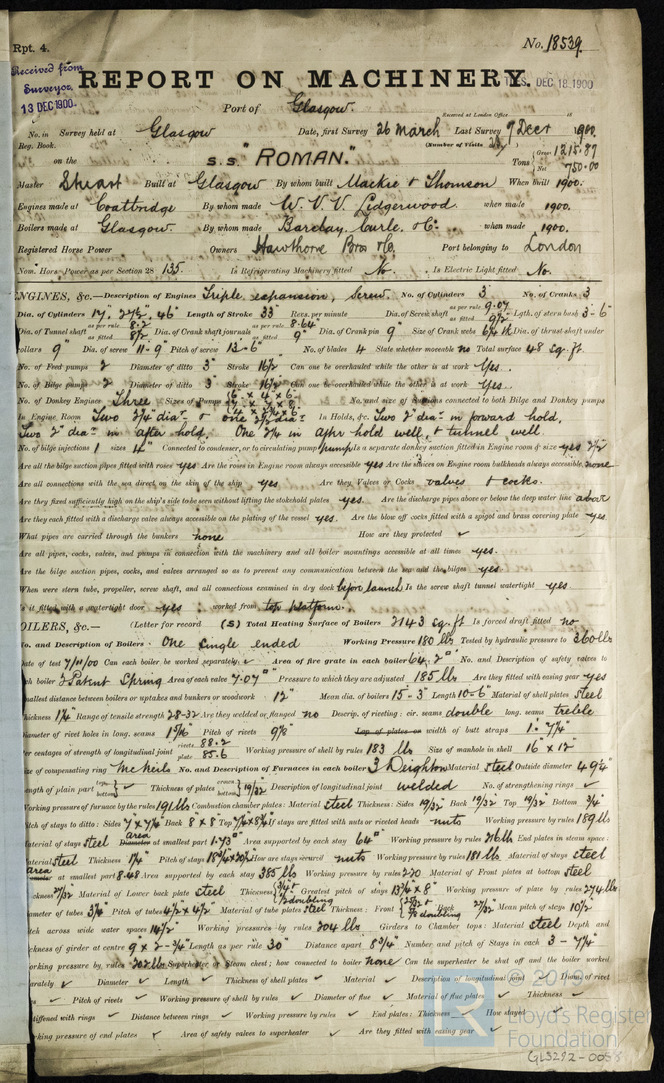 Rpt. 4.
No. 18539.
Received from
Surveyor
13 DEC 1900.
REPORT ON MACHINERY.
S. DEC 18 1900
Port of Glasgow.
Received at London Office 18
No. in Survey held at Glasgow Date, first Survey 26 March Last Survey 7 Decr 1900.
Reg. Book. (Number of Visits
on the s.s "ROMAN." Tons Gross 1215.87
Net 750.00
Master Stuart Built at Glasgow By whom built Mackie & Thomson When built 1900.
Engines made at Coatbridge By whom made W. V. V. Lidgerwood when made 1900.
Boilers made at Glasgow By whom made Barclay Curle & Co. when made 1900.
Registered Horse Power Owners Hawthorne Bros & Co. Port belonging to London
Nom. Horse Power as per Section 28 135. Is Refrigerating Machinery fitted No. Is Electric Light fitted No.
ENGINES, &c.—Description of Engines Triple expansion, Screw. No. of Cylinders 3 No. of Cranks 3
Dia. of Cylinders 17, 27½, 46" Length of Stroke 33" Revs. per minute Dia. of Screw shaft as per rule 9.07 as fitted 9½" Lgth. of stern bush 3-6"
Dia. of Tunnel shaft as per rule 8.2 as fitted 8½ Dia. of Crank shaft journals as per rule 8.64 as fitted 9" Dia. of Crank pin 9" Size of Crank webs Dia. of thrust shaft under
collars 9" Dia. of screw 11-9" Pitch of screw 13-6" No. of blades 4 State whether moveable no Total surface 48 sq. ft.
No. of Feed pumps 2 Diameter of ditto 3" Stroke 16½ Can one be overhauled while the other is at work Yes.
No. of Bilge pumps 2 Diameter of ditto 3" Stroke 16½ Can one be overhauled while the other is at work Yes.
No. of Donkey Engines Three Sizes of Pumps No. and size of Suctions connected to both Bilge and Donkey pumps
In Engine Room Two 2¼ dia. & one 3½ dia. In Holds, &c. Two 2" dia. in forward hold,
Two 2" dia. in after hold. One 2¼ in after hold well, & tunnel well.
No. of bilge injections 1 sizes 4" Connected to condenser, or to circulating pump pump Is a separate donkey suction fitted in Engine room & size yes 2½
Are all the bilge suction pipes fitted with roses yes Are the roses in Engine room always accessible yes Are the sluices on Engine room bulkheads always accessible none
Are all connections with the sea direct on the skin of the ship yes. Are they Valves or Cocks valves & cocks.
Are they fixed sufficiently high on the ship's side to be seen without lifting the stokehold plates yes. Are the discharge pipes above or below the deep water line above
Are they each fitted with a discharge valve always accessible on the plating of the vessel yes. Are the blow off cocks fitted with a spigot and brass covering plate yes
What pipes are carried through the bunkers none How are they protected ✓
Are all pipes, cocks, valves, and pumps in connection with the machinery and all boiler mountings accessible at all times yes.
Are the bilge suction pipes, cocks, and valves arranged so as to prevent any communication between the sea and the bilges yes.
When were stern tube, propeller, screw shaft, and all connections examined in dry dock before launch Is the screw shaft tunnel watertight yes
Is it fitted with a watertight door yes worked from top platform.
OILERS, &c.— (Letter for record (S) Total Heating Surface of Boilers 2143 sq. ft Is forced draft fitted no
No. and Description of Boilers One single ended Working Pressure 180 lbs Tested by hydraulic pressure to 360 lbs
Date of test 7/11/00 Can each boiler be worked separately ✓ Area of fire grate in each boiler 64.2 No. and Description of safety valves to
each boiler 2 Patent Spring Area of each valve 7.07" Pressure to which they are adjusted 185 lbs Are they fitted with easing gear yes
Smallest distance between boilers or uptakes and bunkers or woodwork 12" Mean dia. of boilers 15-3" Length 10-6" Material of shell plates steel
Thickness 1¼" Range of tensile strength 28-32 Are they welded or flanged no Descrip. of riveting: cir. seams double long. seams treble
Diameter of rivet holes in long. seams 1 5/16 Pitch of rivets 9⅛ Lap of plates or width of butt straps 1'-7¼"
Per centages of strength of longitudinal joint rivets 88.2 plate 85.6 Working pressure of shell by rules 183 lbs Size of manhole in shell 16" x 12"
Size of compensating ring McNeils No. and Description of Furnaces in each boiler 3 Deighton Material steel Outside diameter 49¼"
Length of plain part top bottom ✓ Thickness of plates crown bottom 19/32 Description of longitudinal joint welded No. of strengthening rings ✓
Working pressure of furnace by the rules 191 lbs Combustion chamber plates: Material steel Thickness: Sides 19/32 Back 19/32 Top 19/32 Bottom ¾"
Pitch of stays to ditto: Sides 7" x 7¼" Back 8" x 8" Top If stays are fitted with nuts or riveted heads nuts Working pressure by rules 189 lbs
Material of stays steel Diameter Area at smallest part 1.73" Area supported by each stay 64" Working pressure by rules 216 lbs End plates in steam space:
Material steel Thickness 1¼ Pitch of stays How are stays secured nuts Working pressure by rules 181 lbs Material of stays steel
Area at smallest part 8.48 Area supported by each stay 385 lbs Working pressure by rules 220 Material of Front plates at bottom steel
Thickness 27/32 Material of Lower back plate steel Thickness doubling Greatest pitch of stays 13¼ x 8" Working pressure of plate by rules 274 lbs
Diameter of tubes 3¼" Pitch of tubes 4½ x 4½ Material of tube plates steel Thickness: Front doubling Back 27/32 Mean pitch of stays 10½"
Pitch across wide water spaces 14½" Working pressures by rules 204 lbs Girders to Chamber tops: Material steel Depth and
thickness of girder at centre 9 x 2-¾" Length as per rule 30" Distance apart 8¾" Number and pitch of Stays in each 3 - 7¼"
Working pressure by rules 202 lbs Superheater or Steam chest; how connected to boiler none Can the superheater be shut off and the boiler worked
separately ✓ Diameter ✓ Length ✓ Thickness of shell plates ✓ Material ✓ Description of longitudinal joint ✓ Diam. of rivet
✓ Pitch of rivets ✓ Working pressure of shell by rules ✓ Diameter of flue ✓ Material of flue plates ✓ Thickness ✓
stiffened with rings ✓ Distance between rings ✓ Working pressure by rules ✓ End plates: Thickness ✓ How stayed ✓
Working pressure of end plates ✓ Area of safety valves to superheater ✓ Are they fitted with easing gear ✓
© 2019
Lloyd's Register
Foundation
GLS292-0058